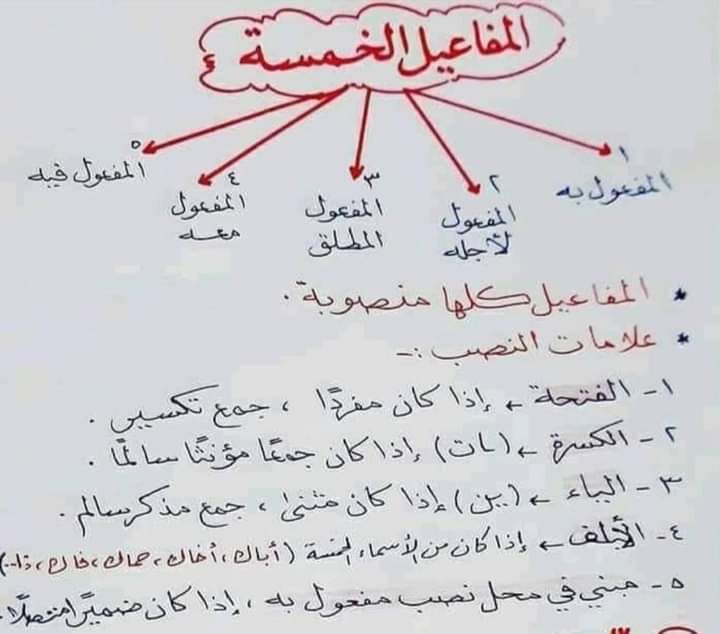 المفاعيل الخمسة
١
المفعول به
٢
المفعول
لأجله
٣
المفعول
المطلق
٤
المفعول
معه
٥
المفعول فيه
* المفاعيل كلها منصوبة .
* علامات النصب :-
١- الفتحة ← إذا كان مفردًا ، جمع تكسير .
٢- الكسرة ← (ات) إذا كان جمعًا مؤنثًا سالمًا .
٣- الياء ← (ين) إذا كان مثنى ، جمع مذكر سالم .
٤- الألف ← إذا كان من الأسماء الخمسة (أباك ، أخاك ، حماك ، فاك ، ذا..)
٥- مبني في محل نصب مفعول به ، إذا كان ضميرًا متصلًا